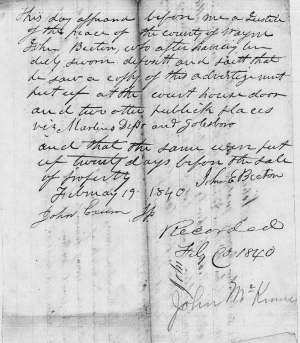 this day appeared before me a Justice
of the peace of the county of Wayne
John Beeton, who after having been
duly sworn deposeth and saith that
he saw a copy of this advertisement
put up at the court house door
and two other publick places
viz, Martins Depo and Golesboro
and that the same were put
up twenty days before the sale
of property
February 19 1840
John E Beeton
John Exum Jp
Recorded
Feby 1840
John McKinne